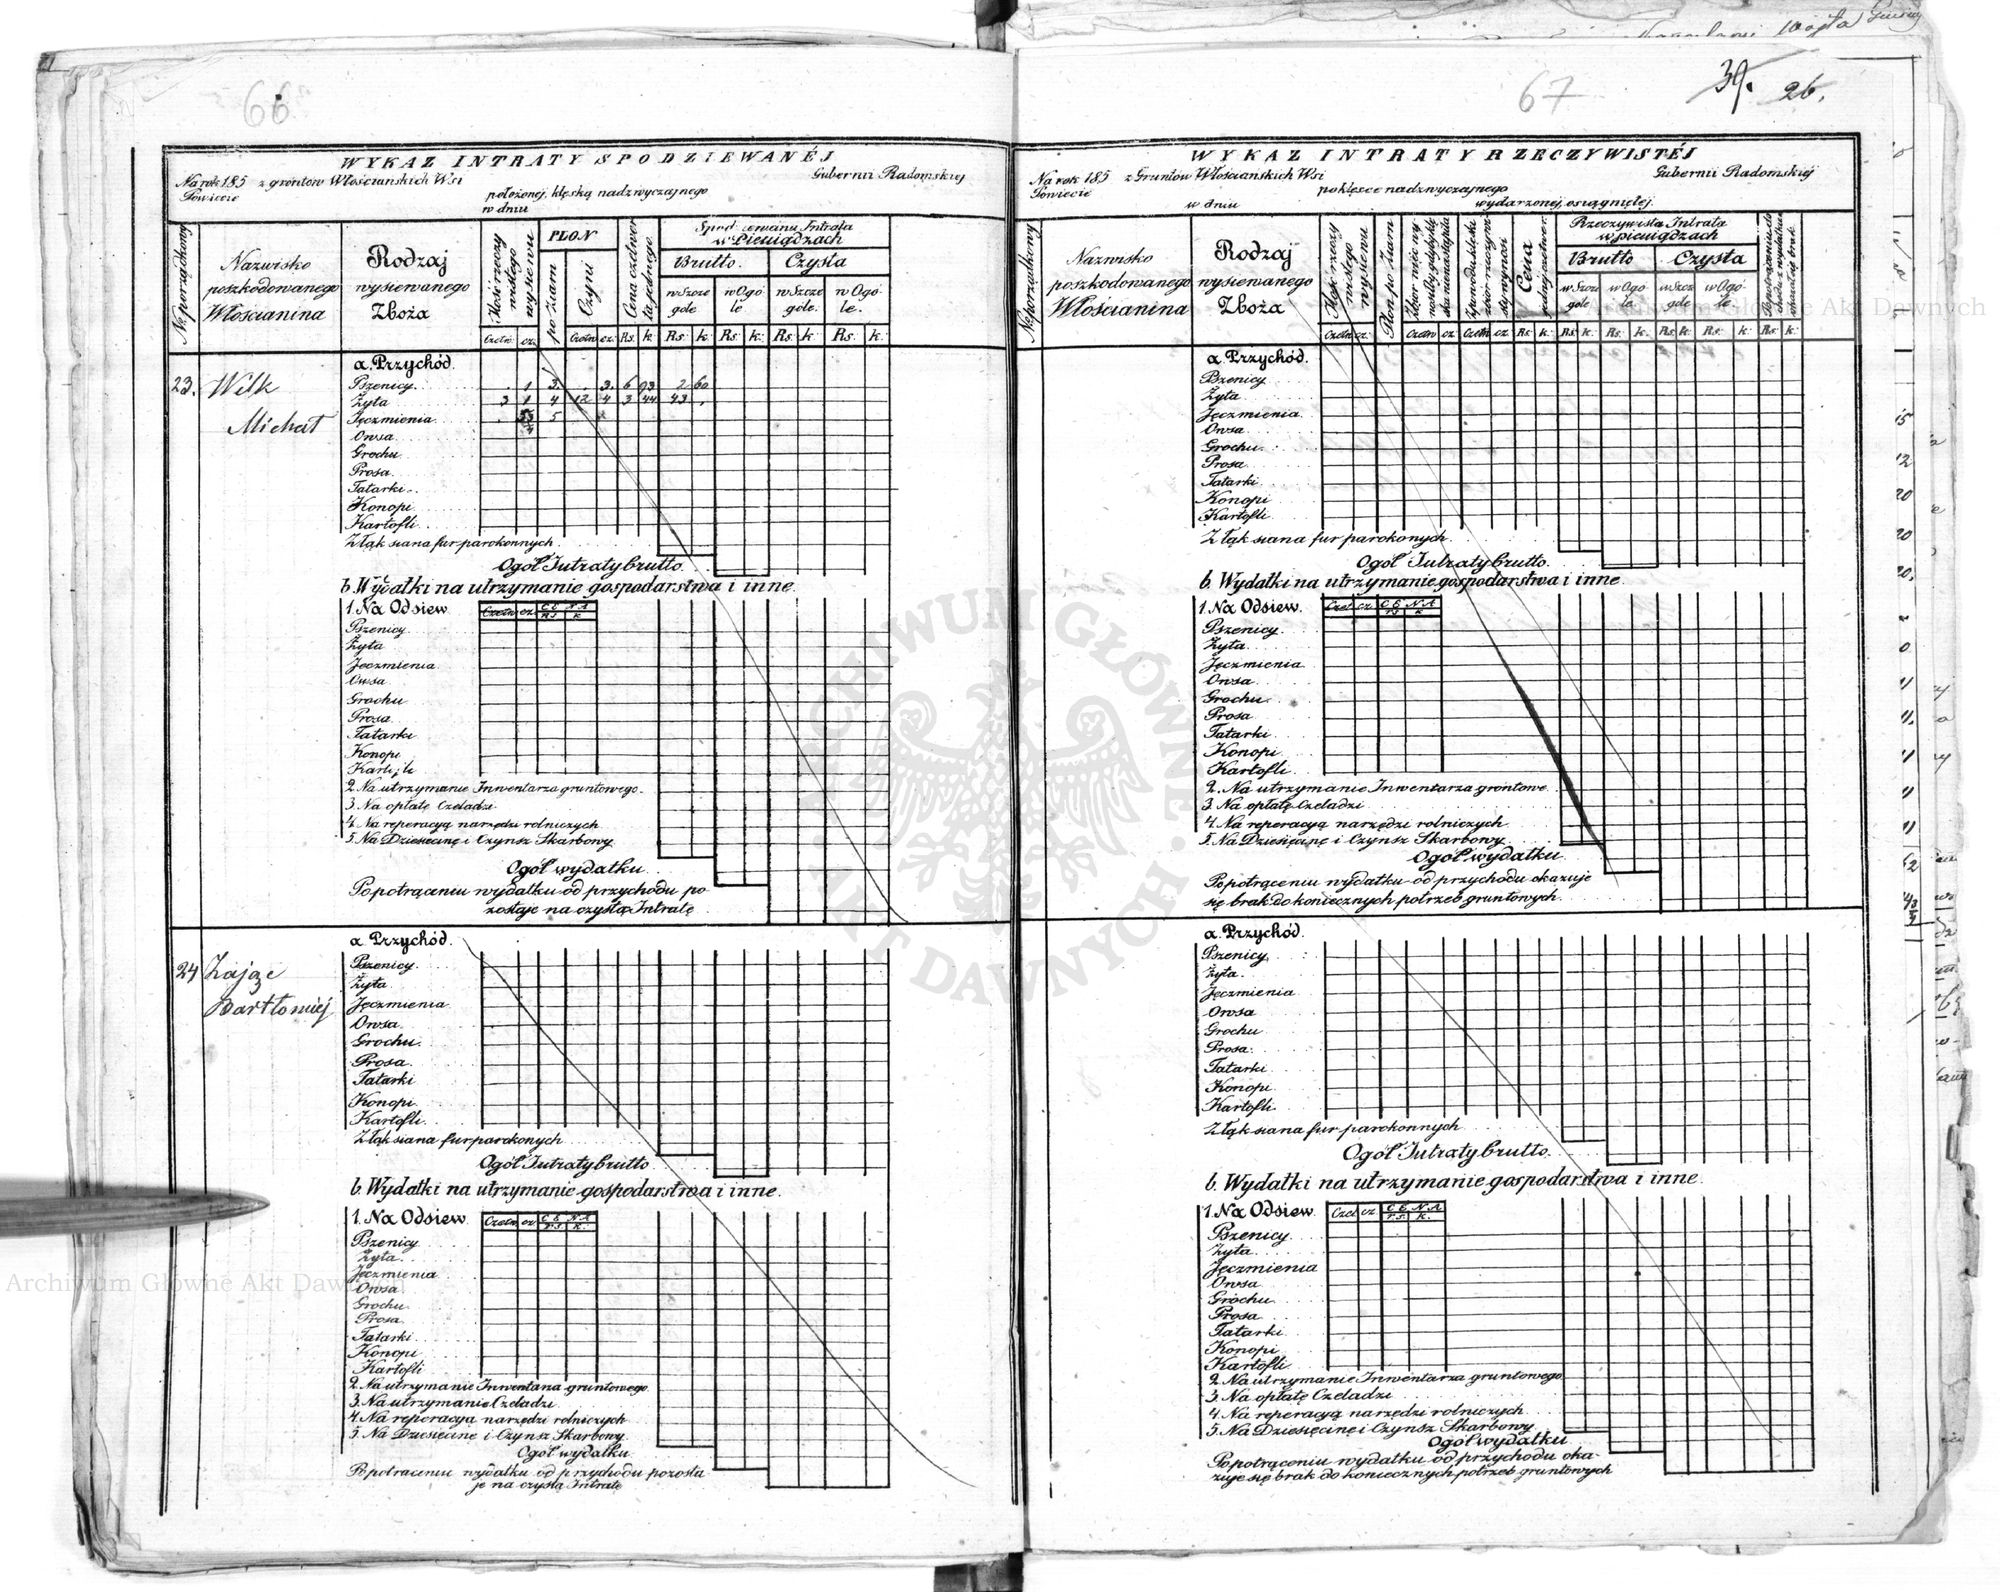 66
WYKAZ INTRATY SPODZIEWANÉJ
Na rok 185 z grontów Włościańskich Wsi Gubernii Radomskiej
Powiecie położonej, klęską nadzwyczajnego
w dniu
№ porządkowy
Nazwisko poszkodowanego Włościanina
Rodzaj wysiewanego Zboża
Ilość rzeczywistego wysiewu
PLON
po ziarn
Czyni
Cena czetwertą jednego
Spodziewana Intrata w Pieniądzach
Brutto. Czysta
w Szczególe w Ogóle w Szczególe. w Ogóle.
Czetw. cz. Czetw. cz. Rs. k. Rs: k: Rs: k: Rs: k: Rs: k:
23. Wilk
Michał
a. Przychód.
Pszenicy . 1 3. . 3. 6 93 2 60
Żyta 3 1 4 12 4 3 44 43 .
Jęczmienia 5
Owsa
Grochu
Prosa
Tatarki
Konopi
Kartofli
Z łąk siana fur parokonnych
Ogół Intraty brutto.
b. Wydatki na utrzymanie gospodarstwa i inne.
1. Na Odsiew Czetw. cz. CENA
Rs k
Pszenicy
Żyta
Jęczmienia
Owsa
Grochu
Prosa
Tatarki
Konopi
Kartofli
2. Na utrzymanie Inwentarza gruntowego.
3. Na opłatę Czeladzi
4. Na reperacyą narzędzi rolniczych
5. Na Dziesięcinę i Czynsz Skarbowy
Ogół wydatku
Po potrąceniu wydatku od przychodu po
zostaje na czystą Intratę
24 Zając
Bartłomiej
a. Przychód.
Pszenicy
Żyta
Jęczmienia
Owsa
Grochu
Prosa
Tatarki
Konopi
Kartofli
Z łąk siana fur parokonych
Ogół Intraty brutto
b. Wydatki na utrzymanie gospodarstwa i inne.
1. Na Odsiew Czetw. cz. CENA
rs. k.
Pszenicy
Żyta
Jęczmienia
Owsa
Grochu
Prosa
Tatarki
Konopi
Kartofli
2. Na utrzymanie Inwentarza gruntowego
3. Na utrzymanie Czeladzi
4. Na reperacyą narzędzi rolniczych
5. Na Dziesięcinę i Czynsz Skarbowy
Ogół wydatku
Po potrąceniu wydatku od przychodu pozosta
je na czystą Intratę
67 39. 26.
WYKAZ INTRATY RZECZYWISTÉJ
Na rok 185 z Gruntów Włościańskich Wsi Gubernii Radomskiej
Powiecie po klęsce nadzwyczajnego
w dniu wydarzonej, osiągniętej.
№ porządkowy
Nazwisko poszkodowanego Włościanina
Rodzaj wysiewanego Zboża
Ilość rzeczywistego wysiewu
Plon po Ziarn
Cena
Rzeczywista Intrata w pieniądzach
Brutto Czysta
w Szczególe w Ogóle w Szczególe w Ogóle.
Czetw cz. Czetw cz Czetw cz Rs. k. Rs: k. Rs: k. Rs: k. Rs: k. Rs: k:
a. Przychód.
Pszenicy
Żyta
Jęczmienia
Owsa
Grochu
Prosa
Tatarki
Konopi
Kartofli
Z łąk siana fur parokonych
Ogół Intraty brutto.
b. Wydatki na utrzymanie gospodarstwa i inne
1. Na Odsiew. Czet. cz. CENA
rs k
Pszenicy
Żyta
Jęczmienia
Owsa
Grochu
Prosa
Tatarki
Konopi
Kartofli
2. Na utrzymanie Inwentarza grontowe
3. Na opłatę Czeladzi
4. Na reperacyą narzędzi rolniczych
5. Na Dziesięcinę i Czynsz Skarbowy
Ogół wydatku
Po potrąceniu wydatku od przychodu okazuje
się brak do koniecznych potrzeb gruntowych
a. Przychód.
Pszenicy
Żyta
Jęczmienia
Owsa
Grochu
Prosa
Tatarki
Konopi
Kartofli
Z łąk siana fur parokonnych
Ogół Intraty brutto.
b. Wydatki na utrzymanie gospodarstwa i inne.
1. Na Odsiew Czet. cz. CENA
rs. k.
Pszenicy
Żyta
Jęczmienia
Owsa
Grochu
Prosa
Tatarki
Konopi
Kartofli
2. Na utrzymanie Inwentarza gruntowego
3. Na opłatę Czeladzi
4. Na reperacyą narzędzi rolniczych
5. Na Dziesięcinę i Czynsz Skarbowy
Ogół wydatku
Po potrąceniu wydatku od przychodu oka-
zuje się brak do koniecznych potrzeb gruntowych
Archiwum Główne Akt Dawnych
Archiwum Główne Akt Dawnych
ARCHIWUM GŁÓWNE AKT DAWNYCH